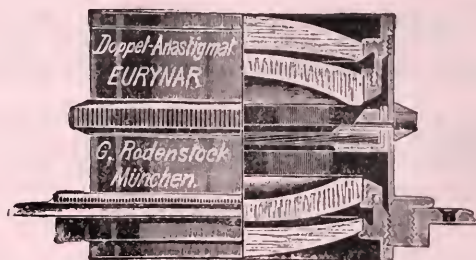 Doppel-Anastigmat
EURYNAR
G. Rodenstock
München.